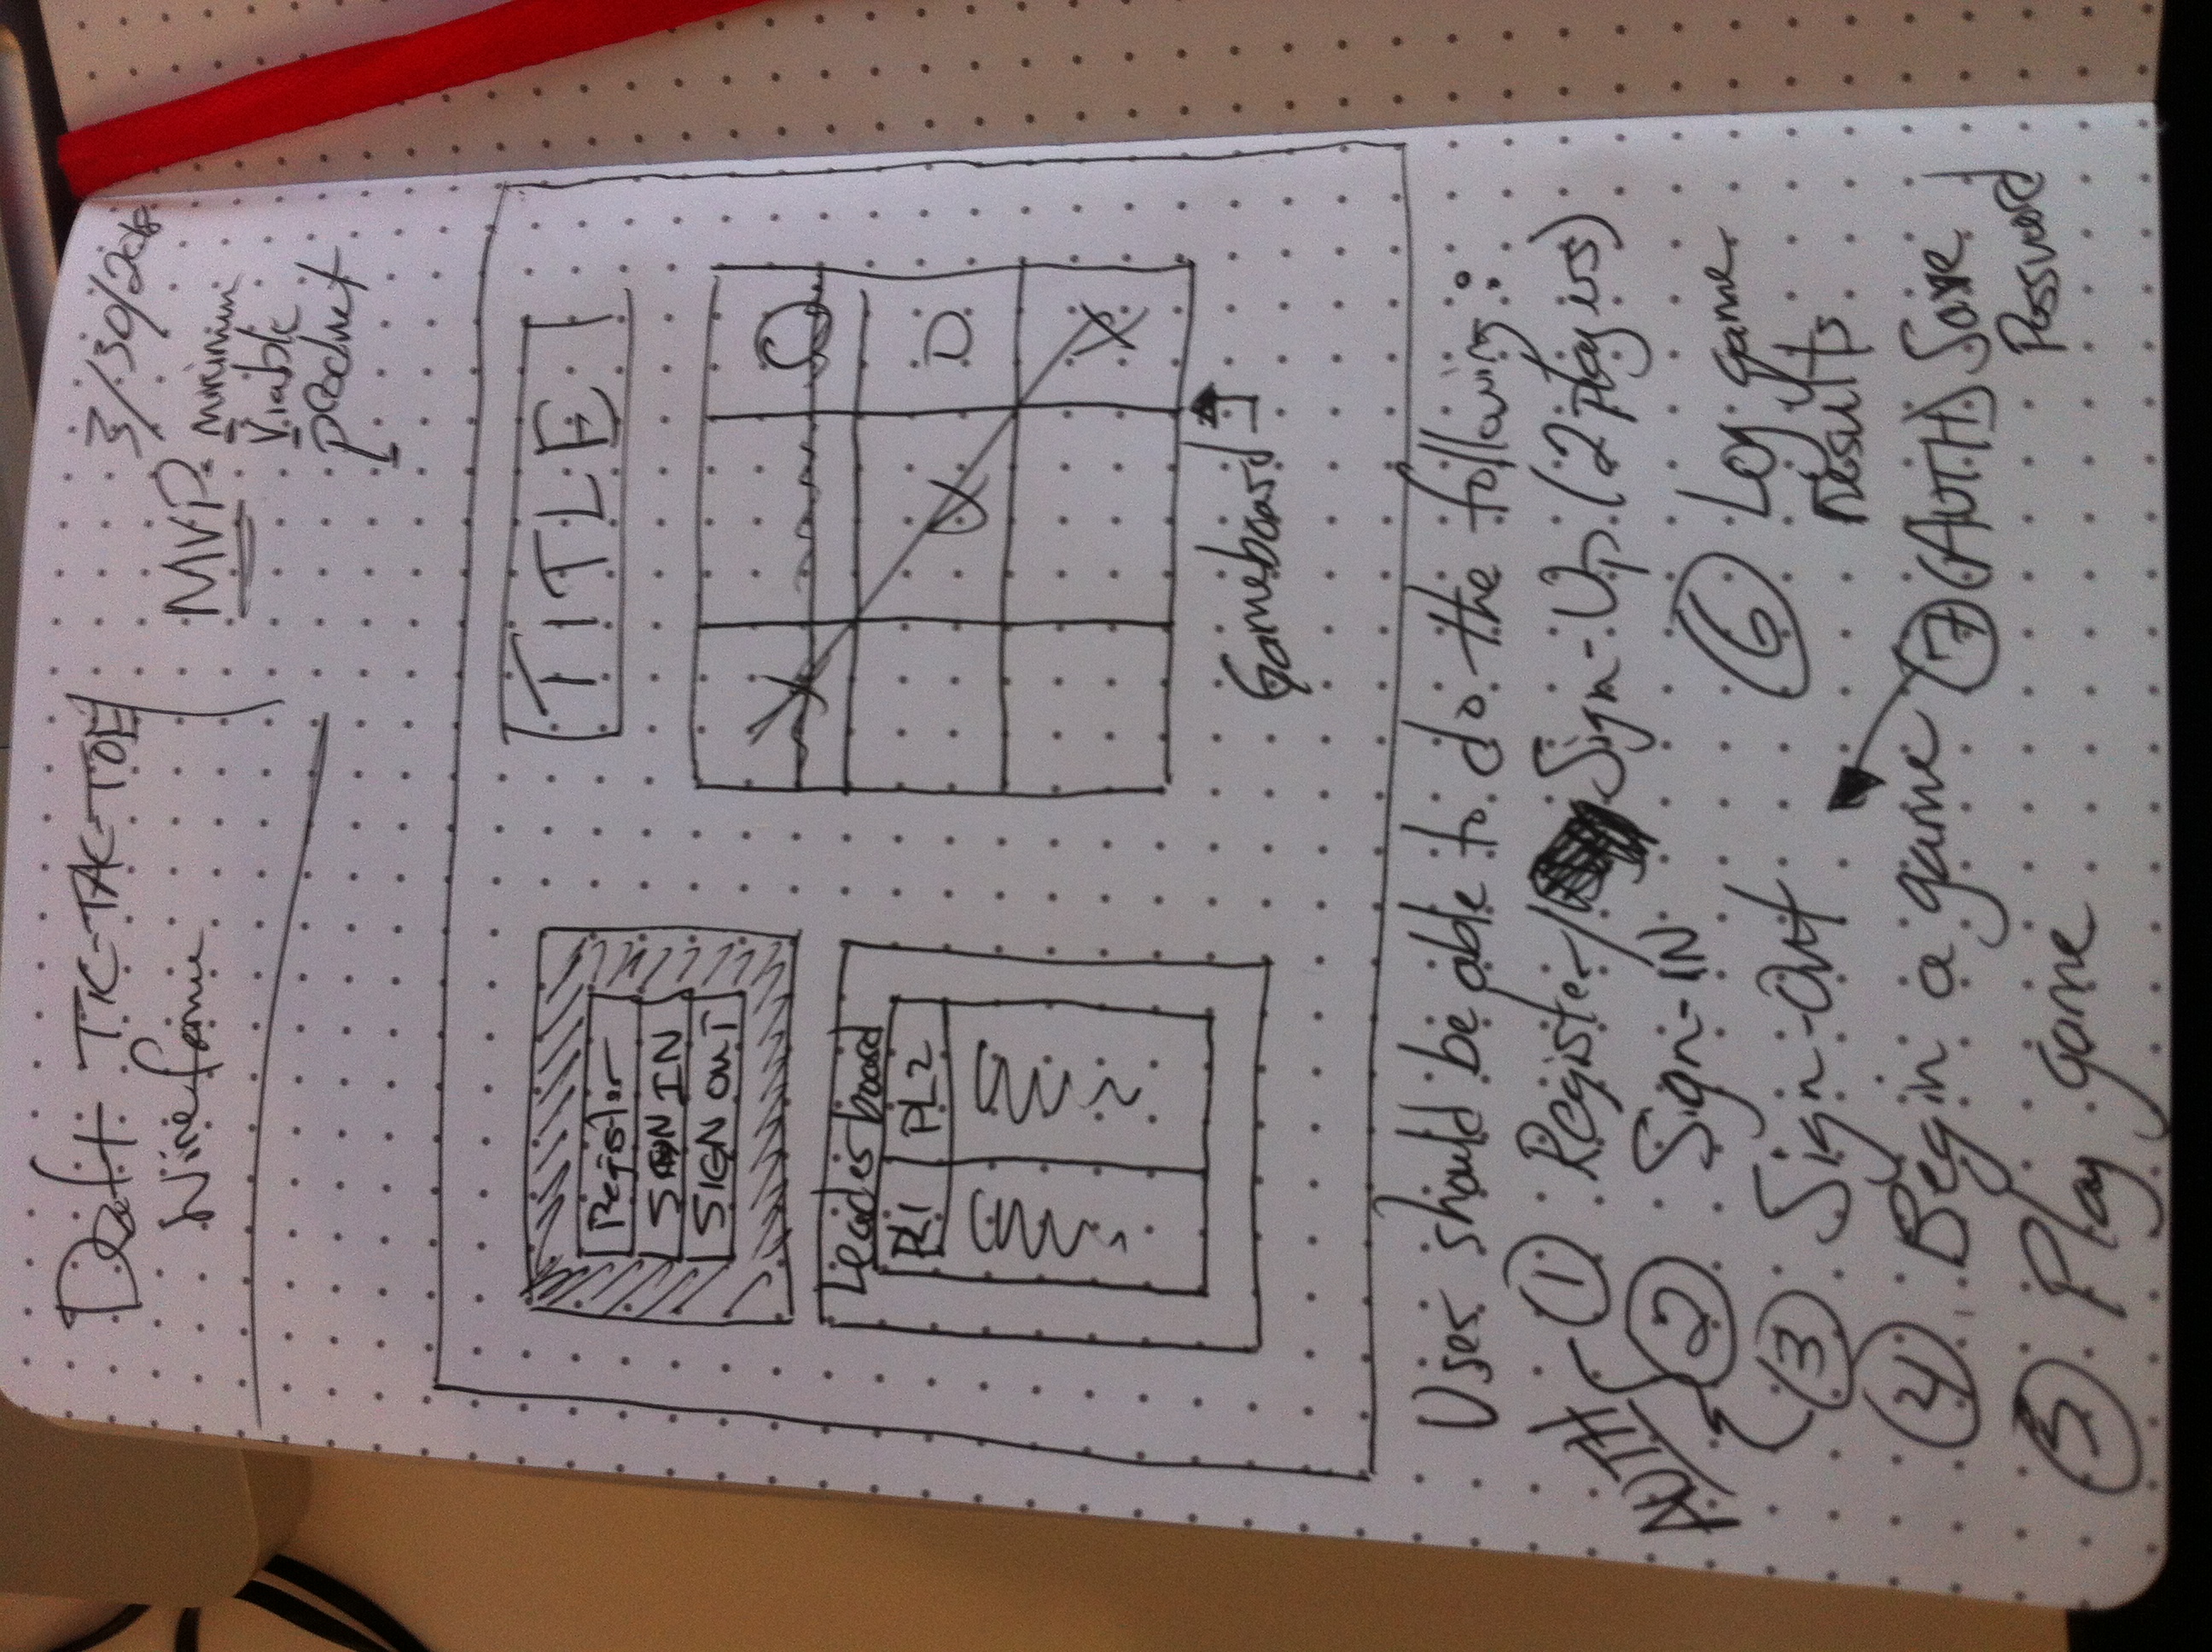 Draft TIC-TAC-TOE
Wireframe
3/30/2018
MVP - minimum
viable
product
TITLE
Register
SIGN IN
SIGN OUT
X O
Leaderboard
PL1 PL2
X O
X
Gameboard
User should be able to do the following:
AUTH
1 Register/ Sign-Up (2 players)
2 Sign-IN
3 Sign-Out
4 Begin a game
5 Play game
6 Log game
results
7 (AUTH) Save
Password